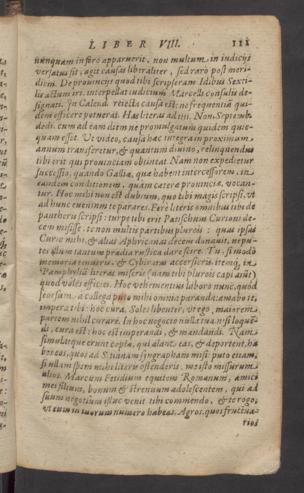 LIBER VIII. 111
nunquam in foro apparuerit, non multum in iudicijs
versatus sit, agit causas liberaliter, sed raro post meri-
diem. De provincijs quod tibi scripseram Idibus Sexti-
lis actum iri: interpellat iudicium Marcelli consulis de-
signati. In Calend. reiecta causa est: ne frequentiā qui-
dem efficere potuerāt. Has literas a.d. IIII. Non. Septemb.
dedi, cum ad eam diem ne profligatum quidem quic-
quam esset. Vt video, causa hæc integra in proximum
annum transferetur, & quantum divino, relinquendus
tibi erit qui prouinciam obtineat. Nam non expeditur
successio, quando Galliæ, quæ habent intercessorem, in
eandem conditionem, quam cæteræ prouinciæ, vocan-
tur. Hoc mihi non est dubium, quo tibi magis scripsi, vt
ad hunc euentum te parares. Ferè literis omnibus tibi de
pantheris scripsi: turpe tibi erit Patischum Curioni de-
cem misisse: te non multis partibus plureis: quas ipsas
Curio mihi, & alias Aphricanas decem donauit, ne pu-
tes illum tantum prædia rustica dare scire. Tu, si modò
memoria tenueris, & Cybiratas accersieris, itemq́; in
Pamphyliā literas miseris (nam ibi plureis capi aiunt)
quod voles efficies. Hoc vehementius laboro nunc, quòd
seorsum à collega puto mihi omnia paranda: amabo te,
impera tibi hoc curæ. Soles libenter, vt ego, maiorem
partem nihil curare. In hoc negotio nulla tua, nisi loquē-
di, cura est: hoc est imperandi, & mandandi. Nam
simulatque erunt captæ, qui alant eas, & deportent, ha-
bes eos, quos ad Sitianam syngrapham misi: puto etiam,
si ullam spem mihi literis ostenderis, me isto missurum
alios. Marcum Feridium equitem Romanum, amici
mei filium, bonum & strenuum adolescentem, qui ad
suum negotium istuc venit tibi commendo, & te rogo,
vt eum in tuorum numero habeas. Agros, quos fructua-
rios